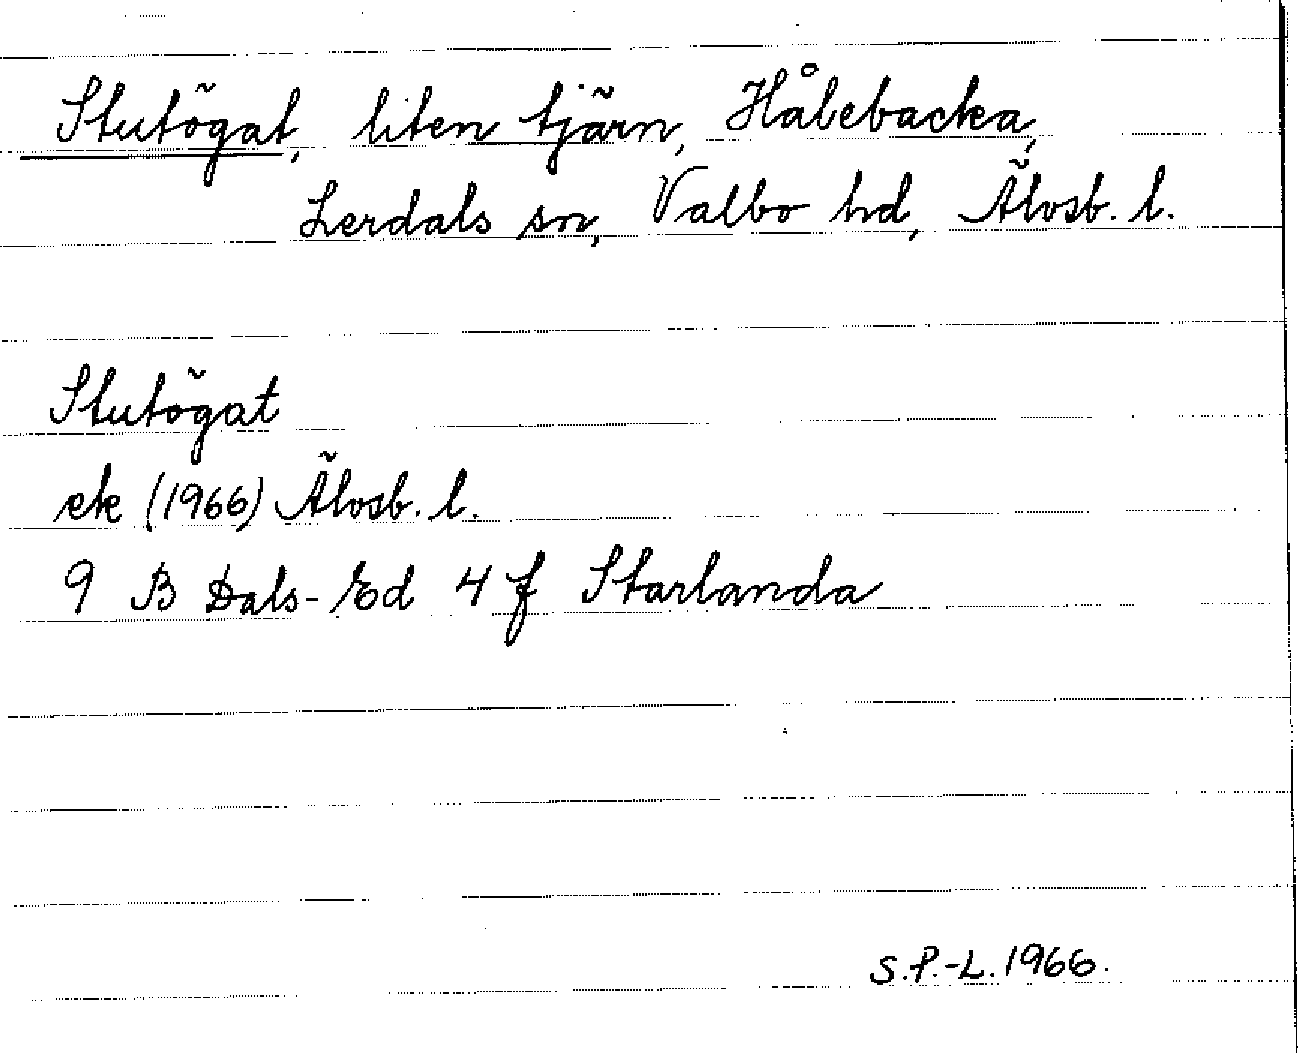 Stutögat, liten tjärn, Håbebacka,
Lerdals sn, Valbo hd, Älvsb. l.
Stutögat
ek (1966) Älvsb. l.
9 B Dals-Ed 4 f Starlanda
S.P.-L. 1966.